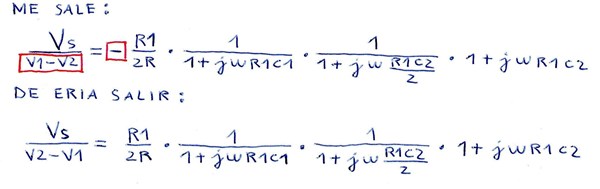 ME SALE:
Vs / V1-V2 = - R1 / 2R · 1 / 1+jwR1C1 · 1 / 1+jw R1C2 / 2 · 1+jwR1C2
DE ERIA SALIR:
Vs / V2-V1 = R1 / 2R · 1 / 1+jwR1C1 · 1 / 1+jw R1C2 / 2 · 1+jwR1C2